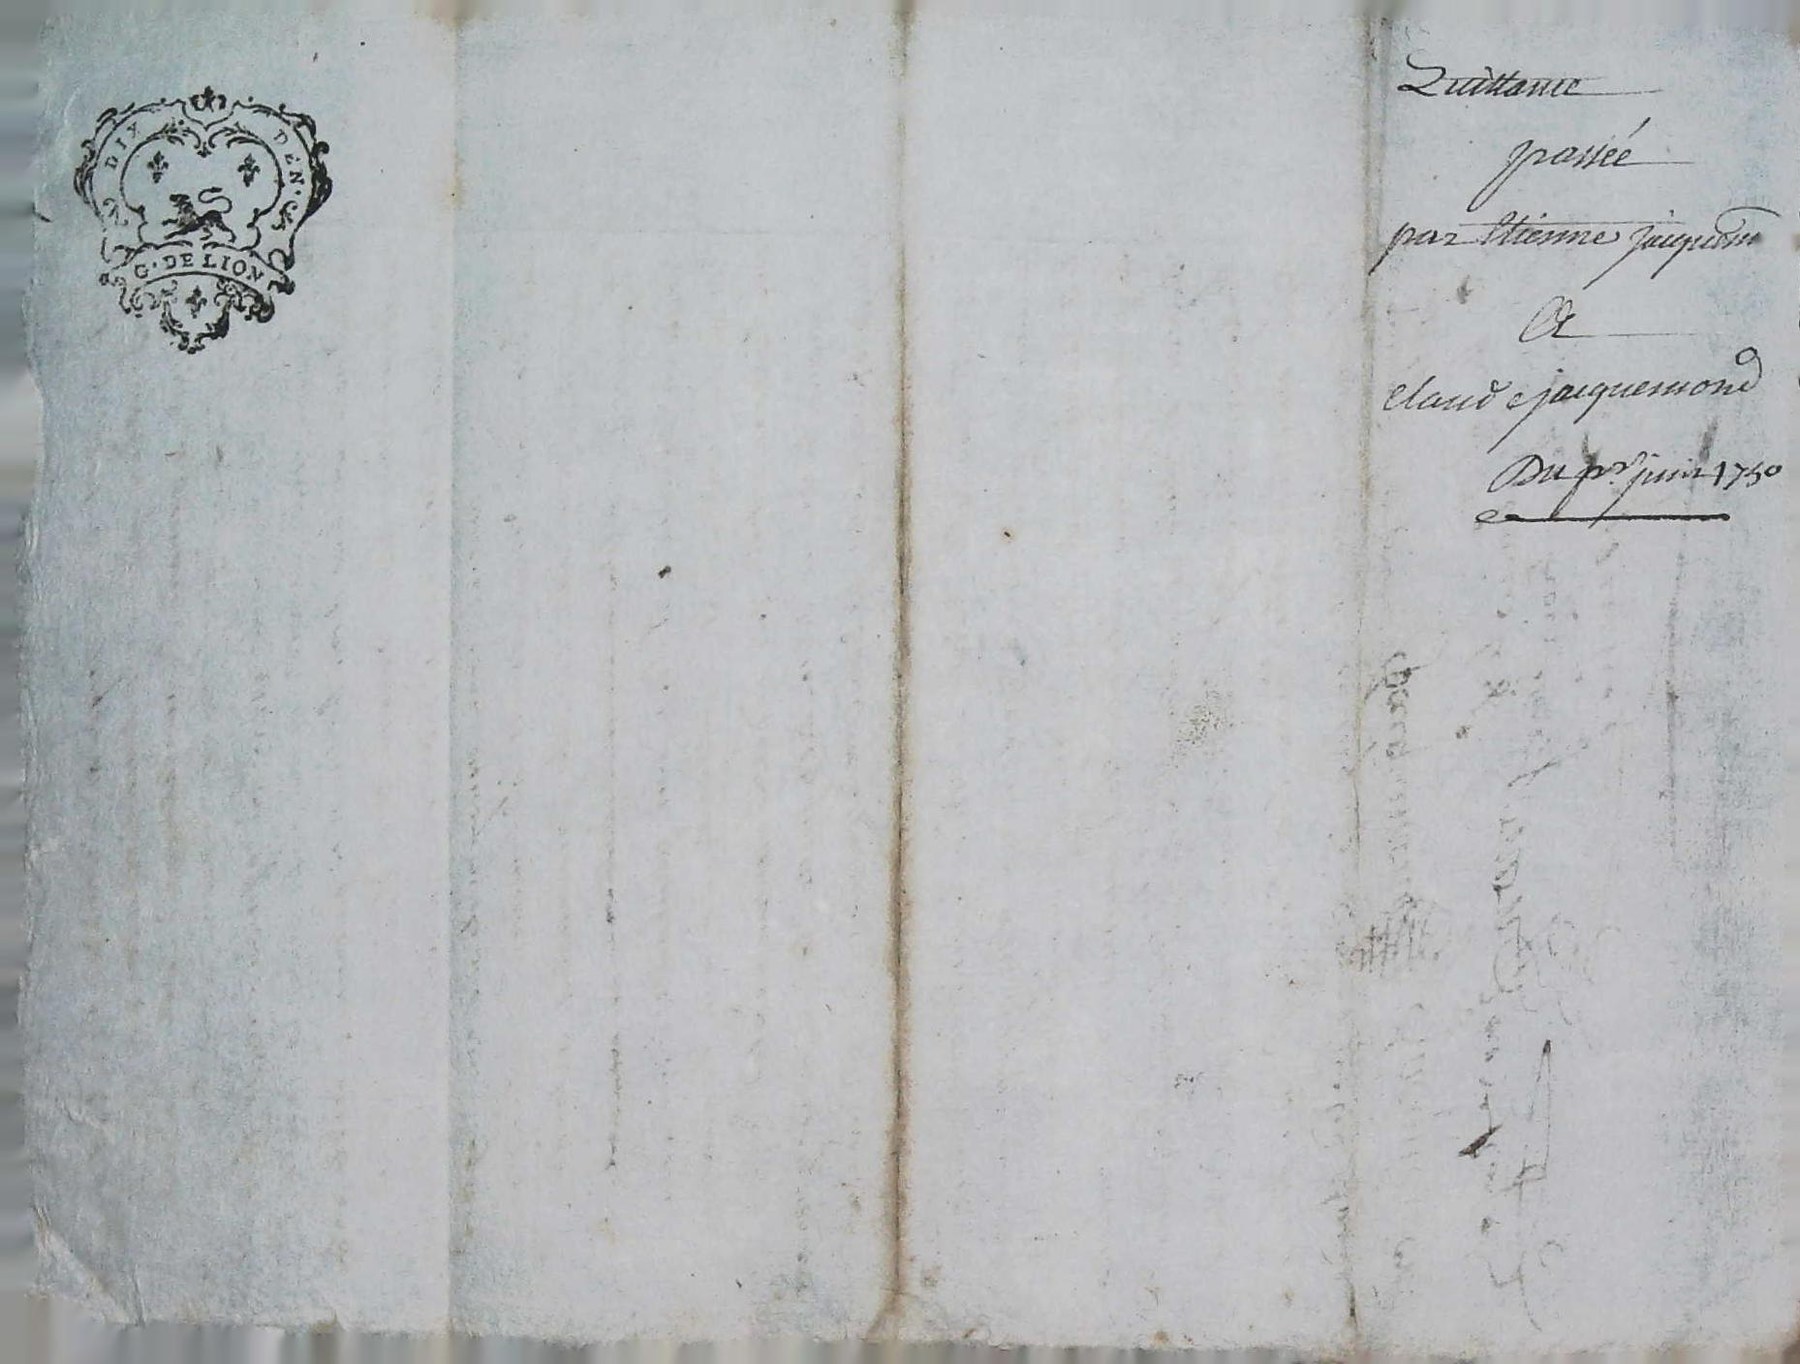 DIX DEN.
G. DE LION
Quittance
passée
par Etienne jacquem
A
claude jacquemond
Du pr. juin 1750